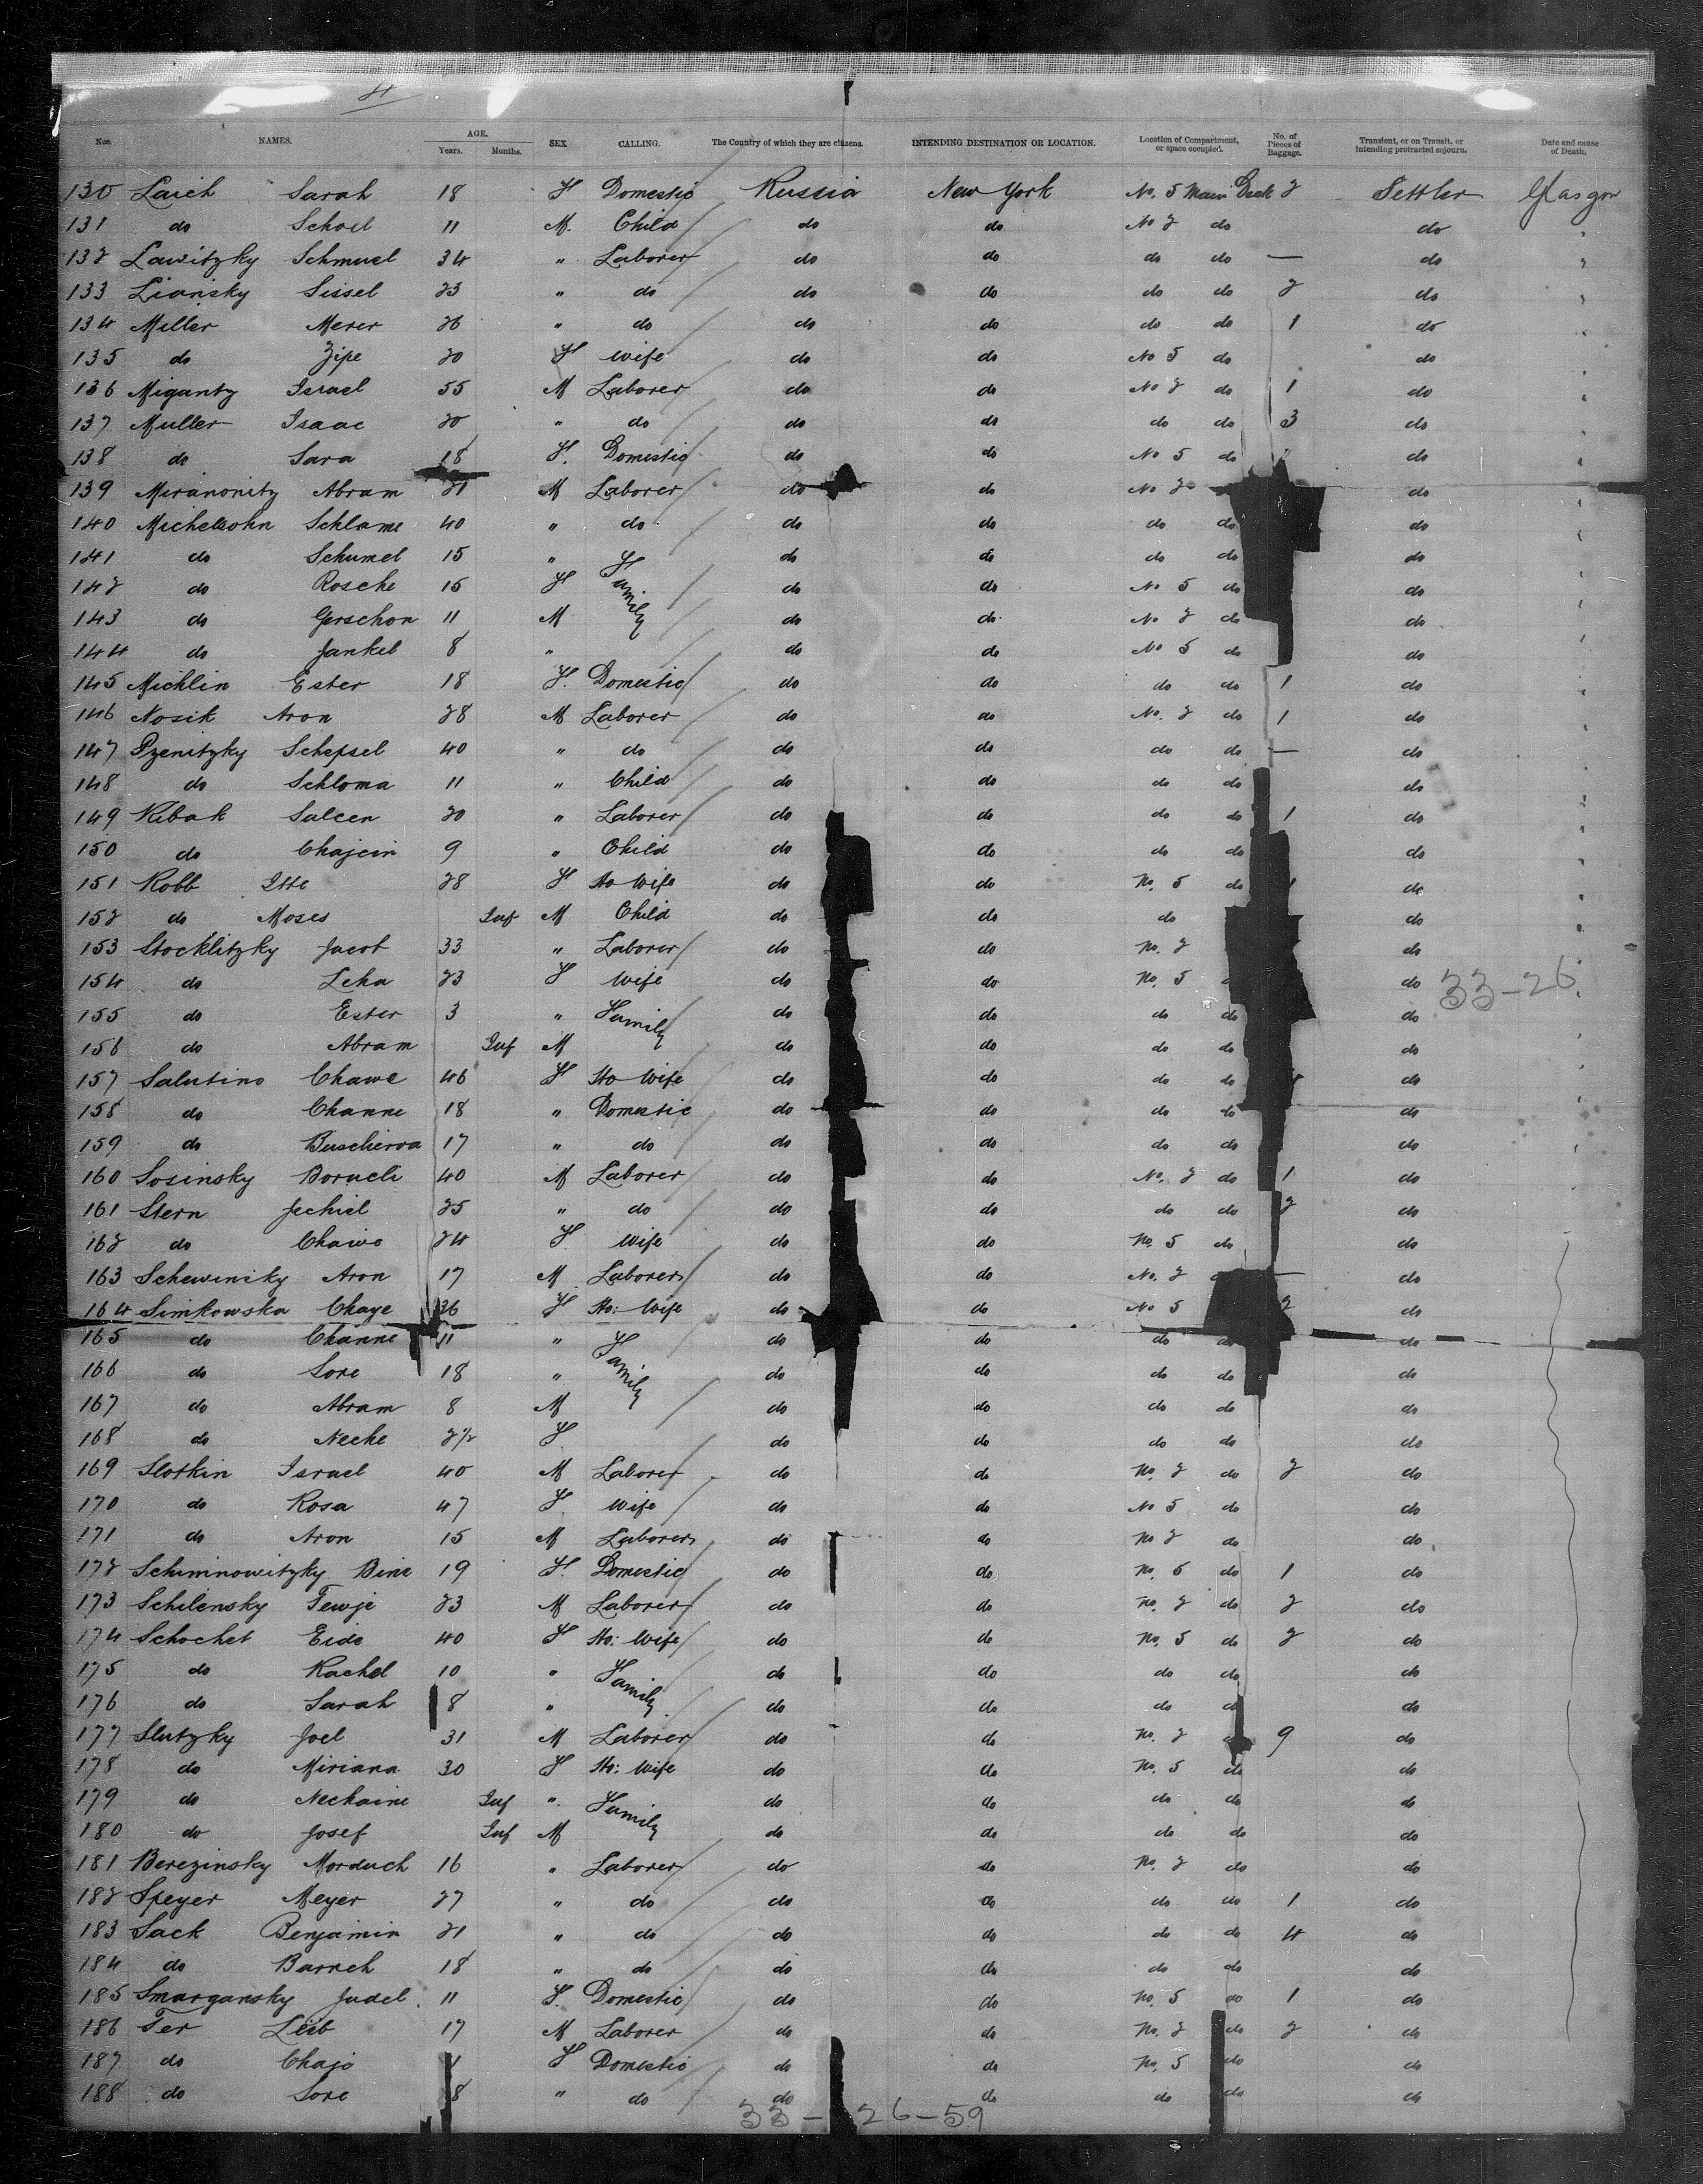 4
Nos. NAMES. AGE. Years. Months. SEX CALLING. The Country of which they are citizens. INTENDING DESTINATION OR LOCATION. Location of Compartment, or space occupied. No. of Pieces of Baggage. Transient, or on Transit, or intending protracted sejourn. Date and cause of Death.
130 Laich Sarah 18 F Domestic Russia New York No. 5 Main Deck 2 Settler Glasgow
131 do Schoel 11 M. Child do do No 2 do do "
132 Lawitzky Schmuel 34 " Laborer do do do do — do "
133 Lionsky Sissel 23 " do do do do do 2 do "
134 Miller Merer 26 " do do do do do 1 do "
135 do Zipe 20 F wife do do No 5 do do "
136 Miganty Israel 55 M Laborer do do No 2 do 1 do "
137 Muller Isaac 20 " do do do do do 3 do "
138 do Sara 18 F. Domestic do do No 5 do do "
139 Meranonitz Abram 21 M Laborer do do No 2 do "
140 Michelsohn Schlame 40 " do do do do do do "
141 do Schumel 15 " Family do do do do do "
142 do Rosche 15 F do do No 5 do do "
143 do Gerschon 11 M do do No 2 do do "
144 do Jankel 8 " do do No 5 do do "
145 Michlin Ester 18 F. Domestic do do do do 1 do "
146 Nosik Aron 28 M Laborer do do No. 2 do 1 do "
147 Pzenitzky Schepsel 40 " do do do do do — do "
148 do Schloma 11 " Child do do do do do "
149 Ribak Salcen 20 " Laborer do do do do 1 do "
150 do Chajein 9 " Child do do do do do "
151 Robb Itte 28 F Ho Wife do do No. 5 do 1 do "
152 do Moses Inf M Child do do do do "
153 Stocklitzky Jacob 33 " Laborer do do No. 2 do "
154 do Leha 23 F Wife do do No. 5 do do "
33-26
155 do Ester 3 " Family do do do do do "
156 do Abram Inf M do do do do do "
157 Salutino Chawe 46 F Ho Wife do do do do do "
158 do Channe 18 " Domestic do do do do do "
159 do Buscherva 17 " do do do do do do "
160 Sosinsky Boruch 40 M Laborer do do No. 2 do 1 do
161 Stern Jechiel 25 " do do do do do 2 do
162 do Chaiwe 24 F. Wife do do No. 5 do do
163 Schewinsky Aron 17 M Laborer do do No. 2 do — do
164 Simkowska Chaye 36 F Ho: Wife do do No 5 2 do
165 do Channe 11 " Family do do do do do
166 do Sore 18 " do do do do do
167 do Abram 8 M do do do do do
168 do Neche 2½ F do do do do do
169 Slotkin Israel 40 M Laborer do do No. 2 do 2 do
170 do Rosa 47 F. Wife do do No 5 do do
171 do Aron 15 M Laborer do do No 2 do do
172 Schiminowitzky Bine 19 F. Domestic do do No. 5 do 1 do
173 Schilensky Tewje 23 M Laborer do do No. 2 do 2 do
174 Schochet Eide 40 F Ho: Wife do do No. 5 do 2 do
175 do Rachel 10 " Family do do do do do
176 do Sarah 8 " do do do do do
177 Slutzky Joel 31 M Laborer do do No. 2 do 9 do
178 do Miriana 30 F Ho: Wife do do No. 5 do do
179 do Nechaine Inf " Family do do do do do
180 do Josef Inf M do do do do do
181 Berezinsky Morduch 16 " Laborer do do No. 2 do do
182 Speyer Meyer 27 " do do do do do 1 do
183 Sack Benjamin 21 " do do do do do 4 do
184 do Barrch 18 " do do do do do do
185 Smargansky Judel 11 F. Domestic do do No. 5 do 1 do
186 Ter Leib 17 M Laborer do do No. 2 do 2 do
187 do Chaje F Domestic do do No. 5 do do
188 do Sore 8 " do do do do do do
33-26-59